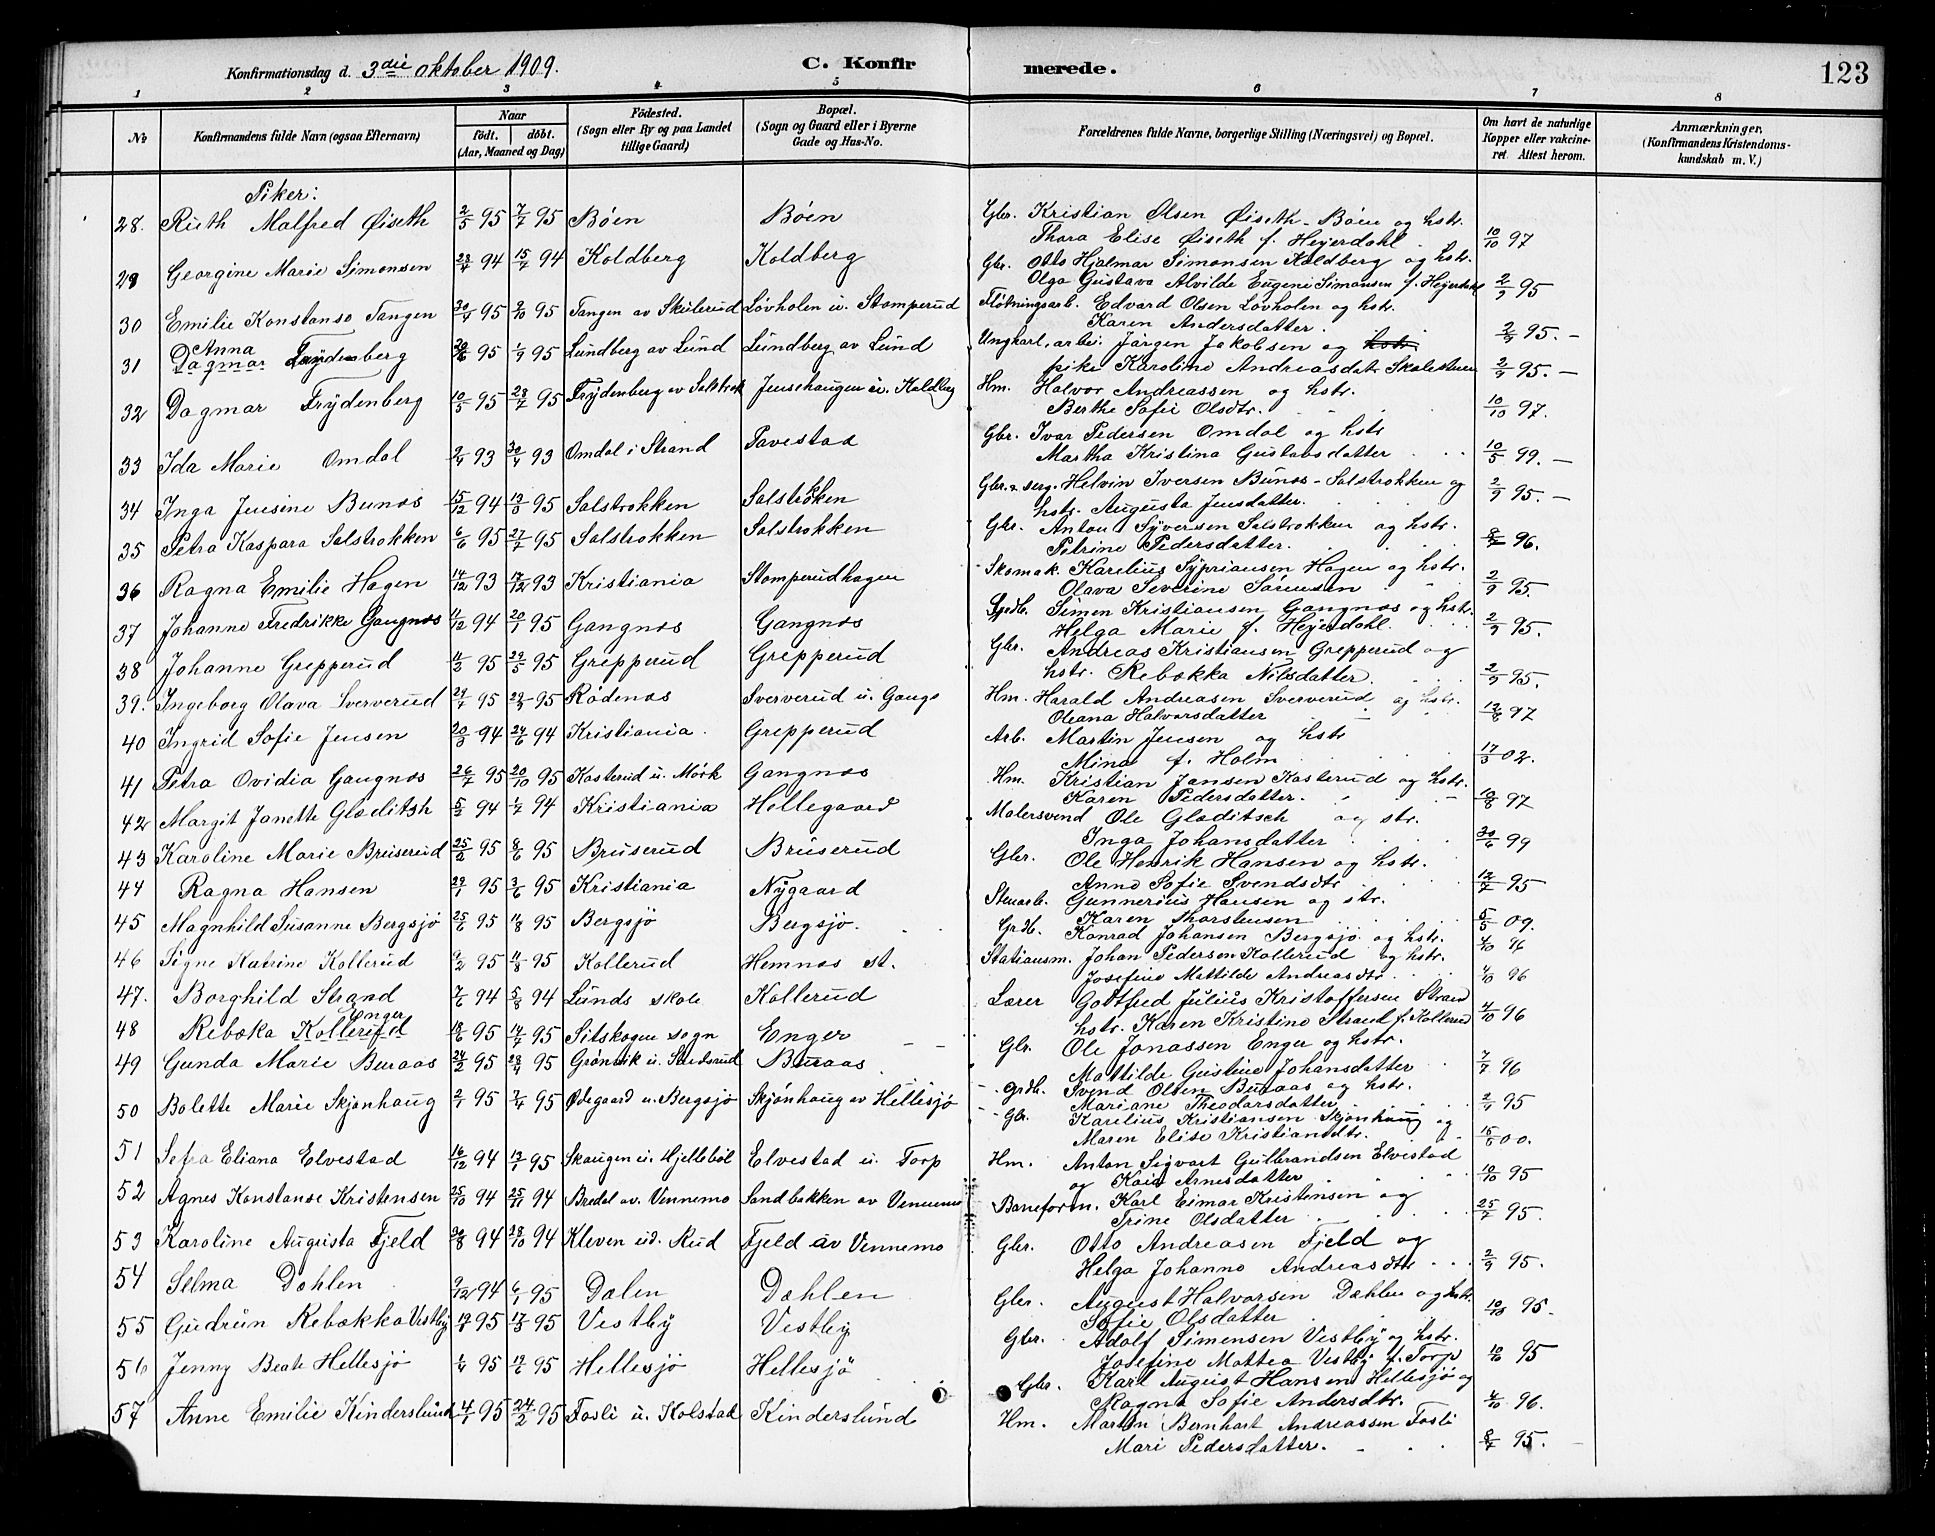 Konfirmationsdag d. 3die oktober 1909. C. Konfirmerede. 123
1 2 3 4 5 6 7 8
No Konfirmandens fulde Navn (ogsaa Efternavn) Naar født. døbt. (Aar, Maaned og Dag) Födested. (Sogn eller By og paa Landet tillige Gaard) Bopæl. (Sogn og Gaard eller i Byerne Gade og Hus-No. Forældrenes fulde Navne, borgerlige Stilling (Næringsvei) og Bopæl. Om havt de naturlige Kopper eller vakcineret. Attest herom. Anmærkninger, (Konfirmandens Kristendomskundskab m. V.)
Piker:
28. Ruth Malfred Øiseth 2/5 95 7/7 95 Böen Böen Gbr. Kristian Olsen Øiseth - Böen og hstr.
Thora Elise Øiseth f. Heyerdahl 10/10 97
29 Georgine Marie Simonsen 28/4 94 15/7 94 Koldberg Koldberg Gbr. Otto Hjalmar Simonsen Koldberg og hstr.
Olga Gustava Alvilde Eugenie Simonsen f. Heyerdahl 2/9 95
30 Emilie Konstanse Tangen 30/4 95 2/10 95 Tangen av Skulerud Lövholen u. Stomperud Flötningsarb. Edvard Olsen Lövholen og hstr.
Karen Andersdatter. 2/9 95.-
31 Anna Dagmar Frydenberg 95 1/9 95 Lundberg av Lund Lundberg av Lund Ungkarl, arb. Jörgen Jakobsen og hstr
pike Karoline Andreasdat. 2/9 95.-
32 Dagmar Frydenberg 10/5 95 28/7 95 Frydenberg av Salstrok Jensehaugen u. Koldberg Hm. Halvor Andreassen og hstr.
Berthe Sofie Olsdtr. 10/10 97.
33 Ida Marie Omdal 2/4 93 30/4 93 Omdal i Strand Tavestad Gbr. Ivar Pedersen Omdal og hstr
Martha Kristina Gustavsdatter 10/5 99.-
34 Inga Jensine Bunæs 15/12 94 13/3 95 Salstrokken Salstrokken Gbr. & serg. Helvin Iversen Bunæs - Salstrokken og
hstr. Augusta Jensdatter. 2/9 95.-
35 Petra Kaspara Salstrokken 6/6 95 27/7 95 Salstrokken Salstrokken Gbr. Anton Syversen Salstrokken og hstr.
Petrine Pedersdatter. 96.
36 Ragna Emilie Hagen 14/12 93 17/12 93 Kristiania Stomperudhagen Skomak. Karelius Sypriansen Hagen og hstr.
Olava Severine Sørensen 2/9 95.
37 Johanne Fredrikke Gangnæs 11/12 94 20/1 95 Gangnæs Gangnæs Grdb. Simen Kristiansen Gangnæs og hstr
Helga Marie f. Heyerdahl. 2/9 95.
38 Johanne Grepperud 11/3 95 29/5 95 Grepperud Grepperud Gbr. Andreas Kristiansen Grepperud og
hstr. Rebekka Nilsdatter. 2/9 95.
39. Ingeborg Olava Sververud 27/7 95 29/9 95 Rødenæs Sververud u. Gangs Hm. Harald Andreasen Sververud og hstr.
Oleana Halvorsdatter 97
40 Ingrid Sofie Jensen 20/3 94 24/6 94 Kristiania. Grepperud Arb. Martin Jensen og hstr
Mina f. Holm 17/3 02.
41 Petra Ovidia Gangnæs 26/7 95 20/10 95 Kasterud u. Mörk Gangnæs Hm. Kristian Jansen Kasterud og hstr.
Karen Pedersdatter. 10/8 97
42 Margit Janette Gladitsh 5/2 94 1/7 94 Kristiania Hellegaard Malersvend Ole Gladitsch og str.
Inga Johansdatter 30/6 99
43 Karoline Marie Bruserud 25/2 95 8/6 95 Bruserud Bruserud Gbr. Ole Henrik Hansen og hstr.
Anne Sofie Svendsdtr 12/7 95
44 Ragna Hansen 29/1 95 3/6 95 Kristiania Nygaard Stenarb. Gunnerius Hansen og str.
Karen Thorstensen 5/5 09.
45 Magnhild Susanne Bergsjö 25/6 95 11/8 95 Bergsjö Bergsjö. Grdb. Konrad Johansen Bergsjö og hstr. 4/10 96
46 Signe Katrine Kollerud 9/2 95 11/8 95 Kollerud Hemnæs st. Stationsm. Johan Pedersen Kollerud og hstr.
Josefine Mathilde Andreasdtr 4/10 96
47. Borghild Strand 7/6 94 5/8 94 Lunds skole Kollerud Lærer Gottfred Julius Kristoffersen Strand
hstr. Karen Kristine Strand f. Kollerud 4/10 96
48 Rebekka Kollerud Enger 18/6 95 14/7 95 Sitskogen sogn Enger Gbr. Ole Jonassen Enger og hstr.
Mathilde Gustine Johansdatter 7/7 96
49 Gunda Marie Buraas 24/2 95 28/4 95 Grönvik u. Buraas Grdb. Svend Olsen Buraas og hstr.
Mariane Theodorsdatter 2/9 95
50 Bolette Marie Skjönhaug 2/1 95 7/4 95 Ødegaard u. Bergsjö Skjönhaug av Hellesjö Gbr. Karelius Kristiansen Skjönhaug og
Maren Elise Kristiandtr. 15/6 00.
51 Sefra Eliana Elvestad 16/12 94 13/1 95 Skaugen u. Hjellebøl Elvestad u. Torp Hm. Anton Sigvart Gulbrandsen Elvestad
og Arnesdatter 10/10 95
52 Agnes Konstanse Kristensen 25/10 94 25/11 94 Bredal av. Vennemo Sandbakken av Vennemo Baneform. Karl Eimar Kristensen og
Trine Olsdatter 25/7 95.
53 Karoline Augusta Fjeld 26/8 94 28/10 94 Kleven ud. Rud Fjeld av Vennemo Gbr. Otto Andreasen Fjeld og
Helga Johanne Andreasdtr 2/9 95.
54 Selma Dæhlen 9/12 94 6/1 95 Dælen Dæhlen Gbr. August Halvorsen Dæhlen og hstr.
Sofie Olsdatter 10/10 95.
55 Gudrun Rebekka Vestby 95 17/3 95 Vestby Vestby Gbr. Adolf Simensen Vestby og hstr.
Josefine Mathea Vestby f. Torp 10/10 95
56 Jenny Beate Hellesjö 1/4 95 95 Hellesjö Hellesjö Gbr. Karl August Hansen Hellesjö og
Magna Sofie Andersdtr. 4/10 96.
57 Anne Emilie Kinderslund 4/1 95 24/2 95 Fosli u. Kolstad Kinderslund Hm. Martin Bernhart Andreassen Fosli
Mari Pedersdatter. 8/7 95.